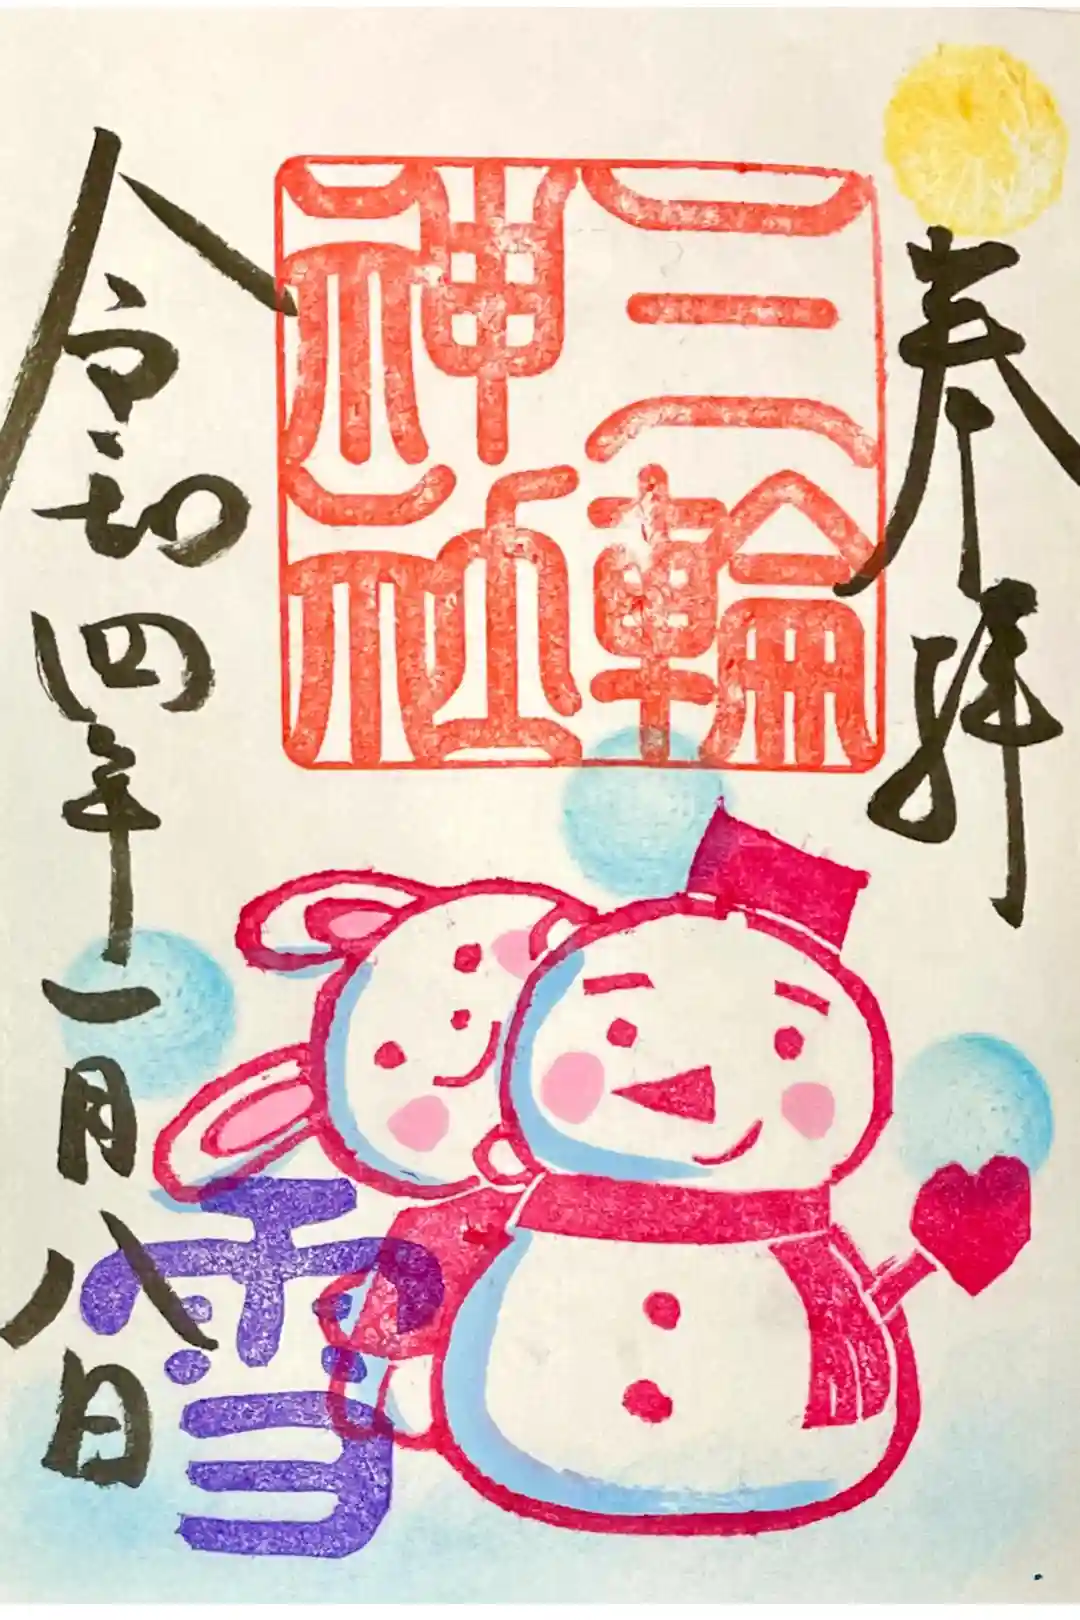 奉拝
三輪
神社
令和四年一月八日
雪